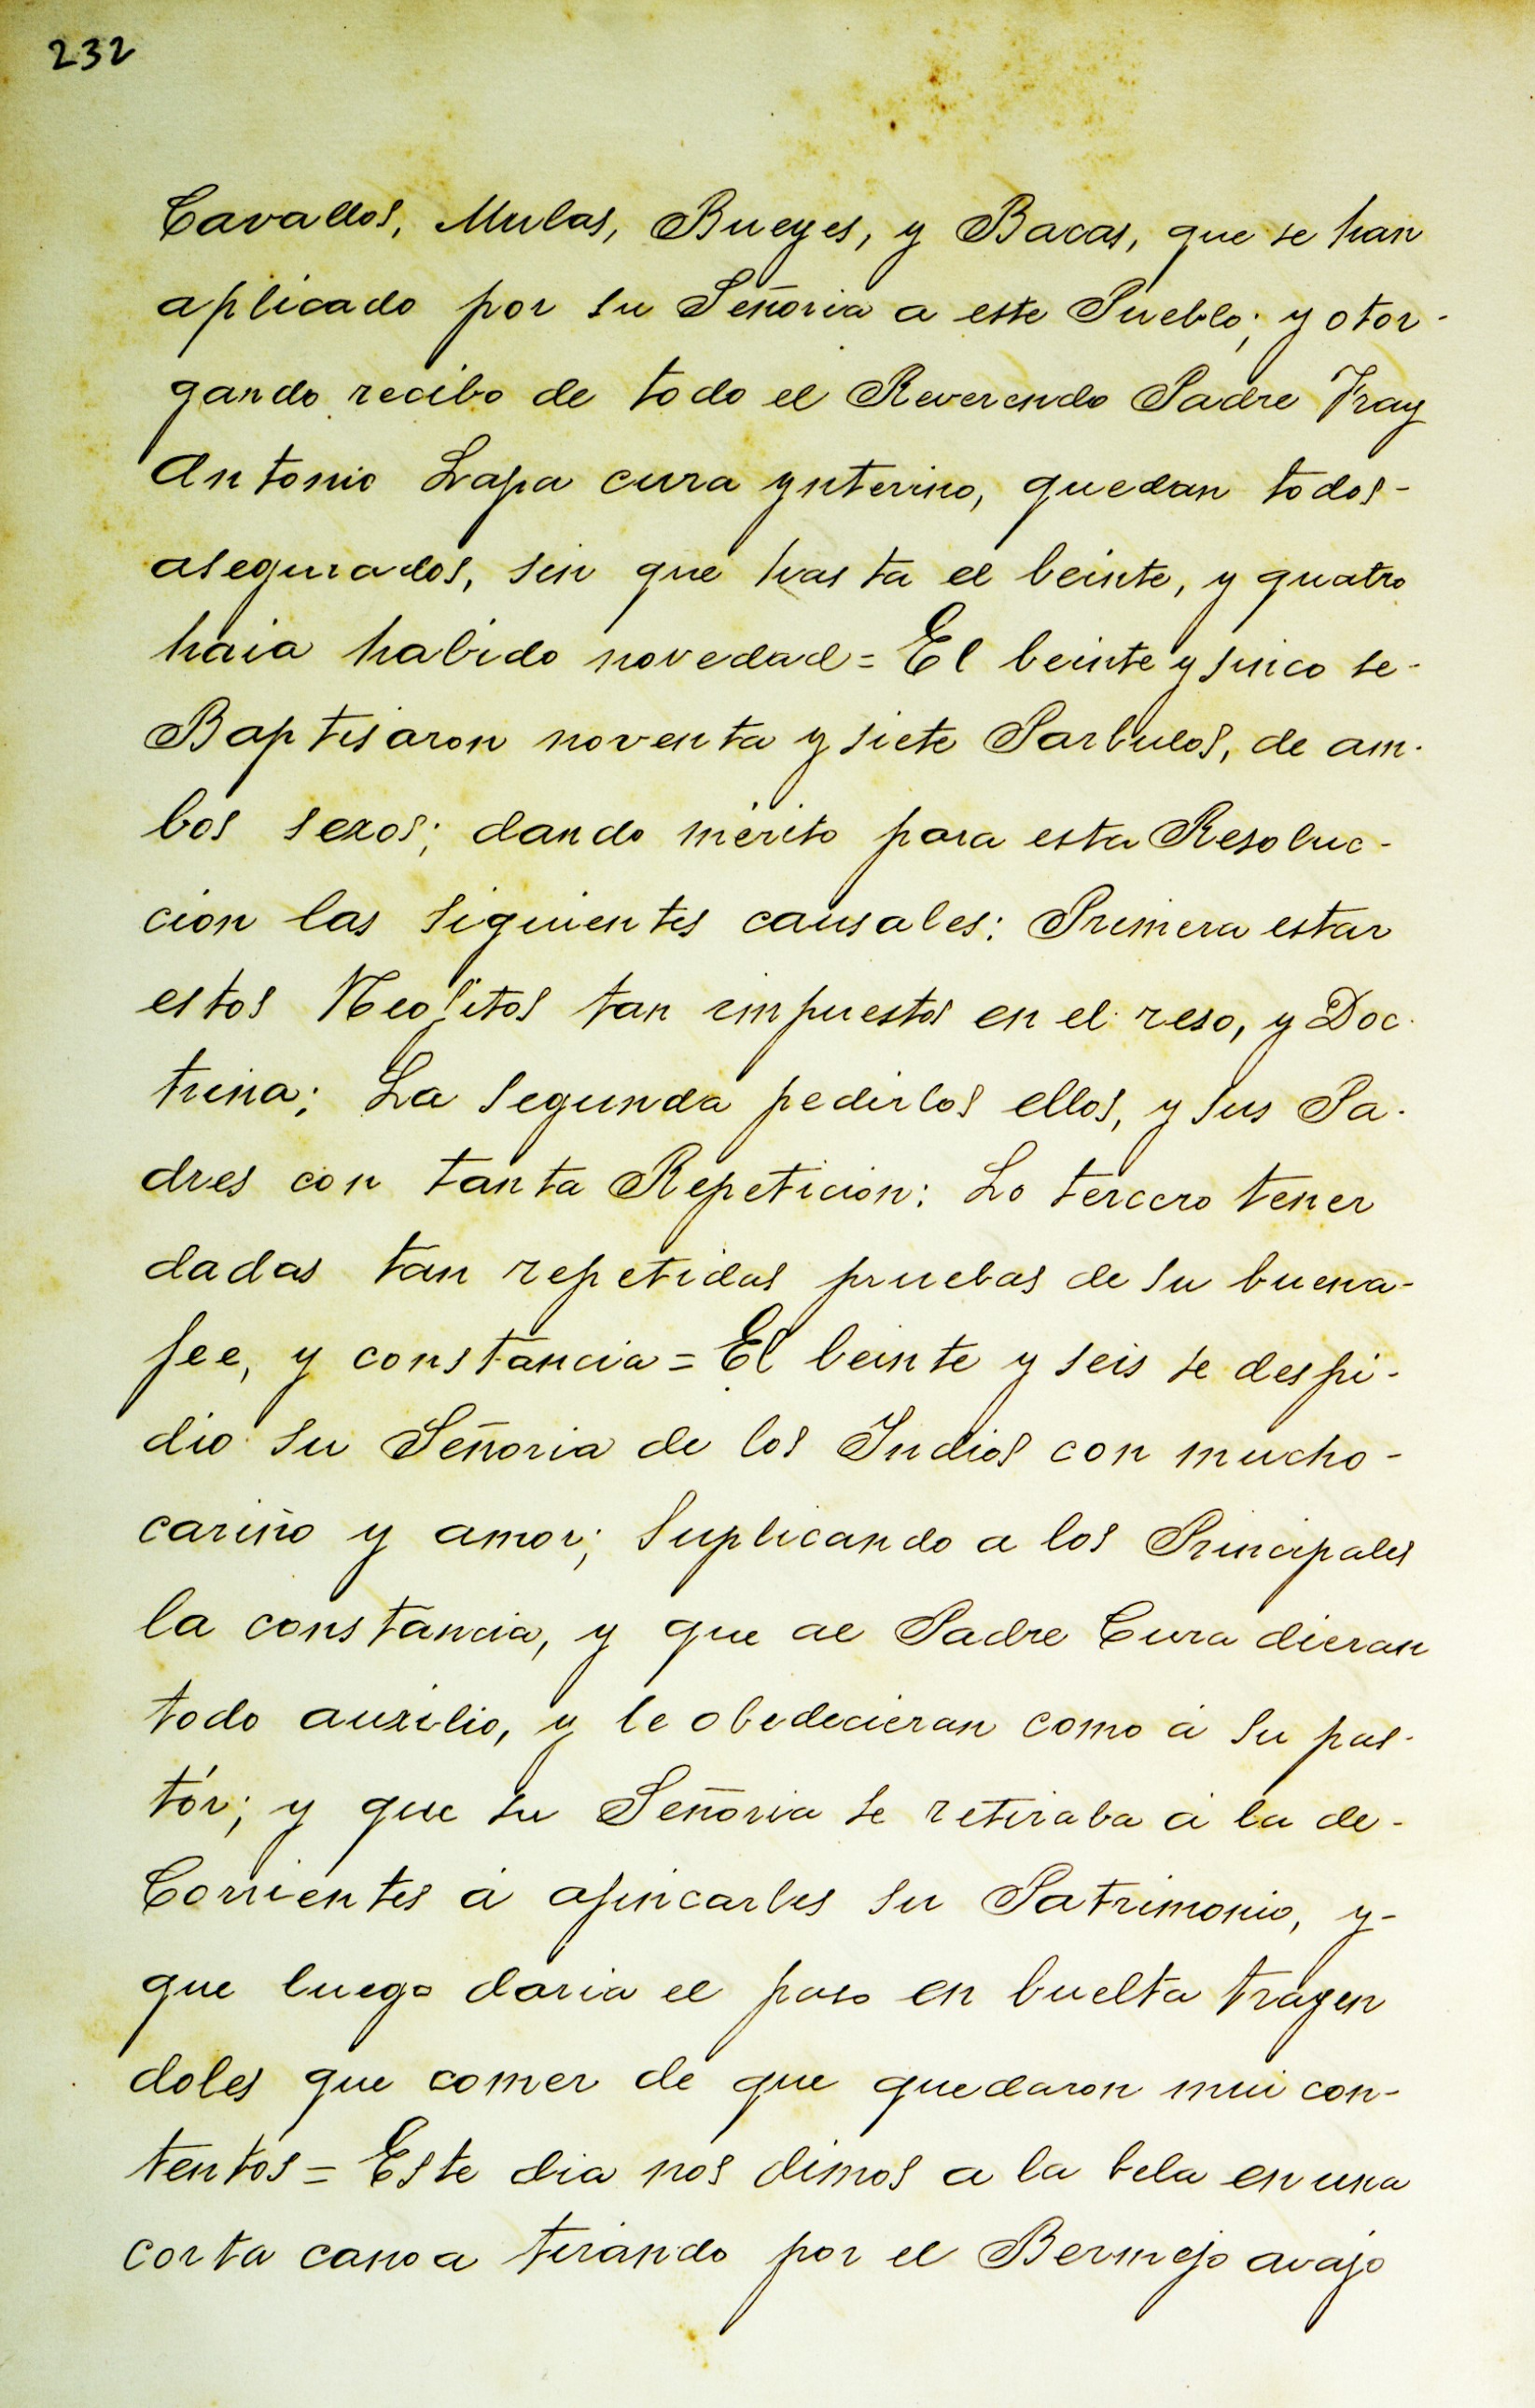 232
Cavallos, Mulas, Bueyes, y Bacas, que se han
aplicado por su Señoria a este Pueblo; y otor-
gando recibo de todo el Reverendo Padre Fray
Antonio Lapa cura ynterino, quedan todos-
asegurados, sin que hasta el beinte, y quatro
haia habido novedad = El beinte y sinco se-
Baptisaron noventa y siete Parbulos, de am-
bos sexos; dando mérito para esta Resoluc-
cion las siguientes causales: Primera estar
estos Neofitos tan impuestos en el reso, y Doc-
trina; La segunda pedirlos ellos, y sus Pa-
dres con tanta Repeticion: Lo tercero tener
dadas tan repetidas pruebas de su buena-
fee, y constancia = El beinte y seis se despi-
dio su Señoria de los Indios con mucho-
cariño y amor; suplicando a los Principales
la constancia, y que al Padre Cura dieran
todo auxilio, y le obedecieran como á su pas-
tór; y que su Señoria se retiraba á la de-
Corrientes á afincarles su Patrimonio, y-
que luego daria el paso en buelta trayen
doles que comer de que quedaron mui con-
tentos = Este dia nos dimos a la bela en una
corta canoa tirando por el Bermejo avajo